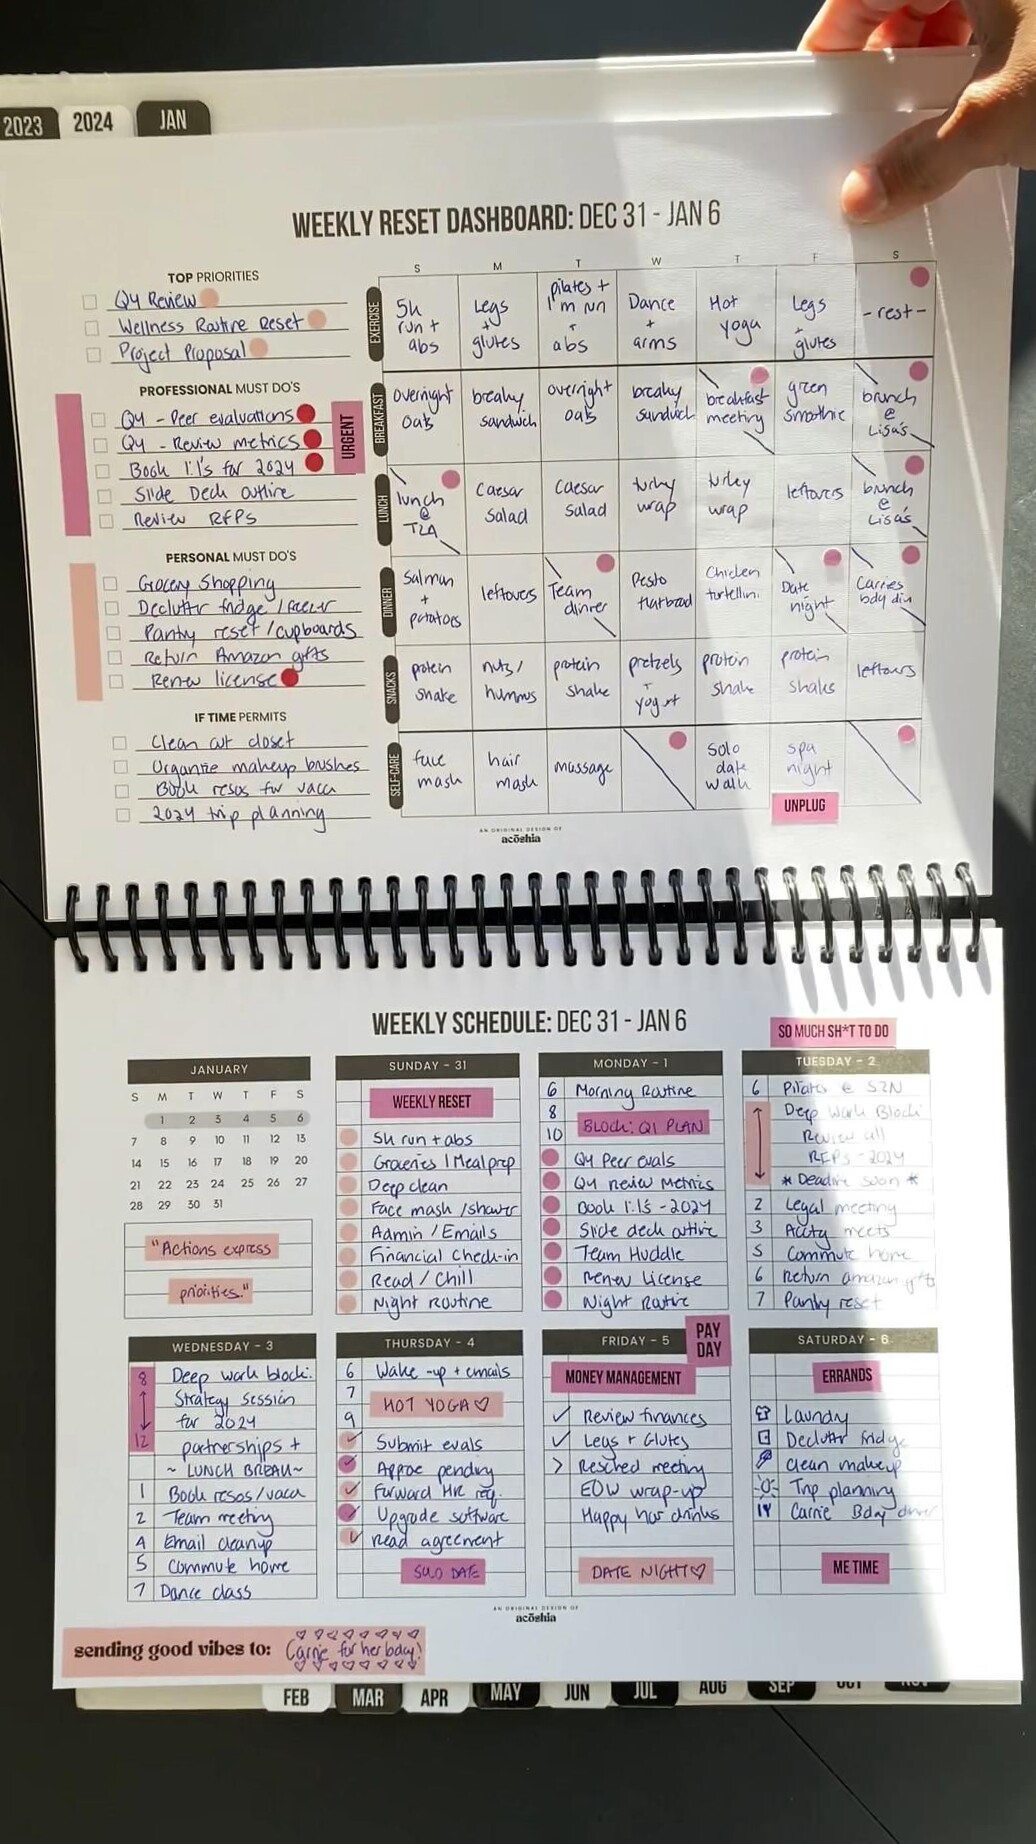 2023
2024
JAN
WEEKLY RESET DASHBOARD: DEC 31 - JAN 6
TOP PRIORITIES
Q4 Review
Wellness Routine Reset
Project Proposal
PROFESSIONAL MUST DO'S
URGENT
Q4 - Peer evaluations
Q4 - Review metrics
Book 1:1's for 2024
Slide Deck outline
Review RFPS
PERSONAL MUST DO'S
Grocery Shopping
Declutter fridge / freezer
Pantry reset / cupboards
Return Amazon gifts
Renew license
IF TIME PERMITS
Clean out closet
Organize makeup brushes
Book resos for vaca
2024 trip planning
S M T W T F S
EXERCISE
5k
run +
abs
Legs
+
glutes
pilates +
1m run
+
abs
Dance
+
arms
Hot
yoga
Legs
+
glutes
- rest -
BREAKFAST
overnight
oats
breaky
sandwich
overnight
oats
breaky
sandwich
breakfast
meeting
green
smoothie
brunch
@
Lisa's
LUNCH
lunch
@
Caesar
Salad
Caesar
Salad
turkey
wrap
turkey
wrap
leftovers
brunch
@
Lisa's
DINNER
Salmon
+
potatoes
leftovers
Team
dinner
Pesto
flatbread
Chicken
tortellini
Date
night
Carries
bday din
SNACKS
protein
shake
nuts /
hummus
protein
shake
pretzels
+
yogurt
protein
shake
protein
shake
leftovers
SELF-CARE
face
mask
hair
mask
massage
Solo
date
walk
spa
night
UNPLUG
AN ORIGINAL DESIGN OF
acōshia
WEEKLY SCHEDULE: DEC 31 - JAN 6
SO MUCH SH*T TO DO
JANUARY
S M T W T F S
1 2 3 4 5 6
7 8 9 10 11 12 13
14 15 16 17 18 19 20
21 22 23 24 25 26 27
28 29 30 31
"Actions express
priorities."
SUNDAY - 31
WEEKLY RESET
5k run + abs
Groceries / Mealprep
Deep clean
Face mask / shower
Admin / Emails
Financial Check-in
Read / Chill
Night Routine
MONDAY - 1
6 Morning Routine
8
10 BLOCK: Q1 PLAN
Q4 Peer evals
Q4 Review Metrics
Book 1:1's - 2024
Slide deck outline
Team Huddle
Renew License
Night Routine
TUESDAY - 2
6 Pilates @
Deep Work Block:
Review all
RFPS - 2024
* Deadline soon *
2 Legal meeting
3 Acctg meets
5 Commute home
6 Return amazon gifts
7 Pantry reset
WEDNESDAY - 3
8 Deep work block:
Strategy session
for 2024
12 partnerships +
~ LUNCH BREAK ~
1 Book resos / vaca
2 Team meeting
4 Email cleanup
5 Commute home
7 Dance class
THURSDAY - 4
6 Wake-up + emails
7
HOT YOGA ♡
9
Submit evals
Approve pending
Forward HR req.
Upgrade software
Read agreement
SOLO DATE
FRIDAY - 5
PAY
DAY
MONEY MANAGEMENT
✓ Review finances
✓ Legs + Glutes
> Resched meeting
EOW wrap-up
Happy hour drinks
DATE NIGHT ♡
SATURDAY - 6
ERRANDS
Laundry
Declutter fridge
Clean makeup
Trip planning
Carrie Bday dinner
ME TIME
AN ORIGINAL DESIGN OF
acōshia
sending good vibes to: Carrie for her bday!
FEB
MAR
APR
MAY
JUN
JUL
AUG
SEP
OCT
NOV